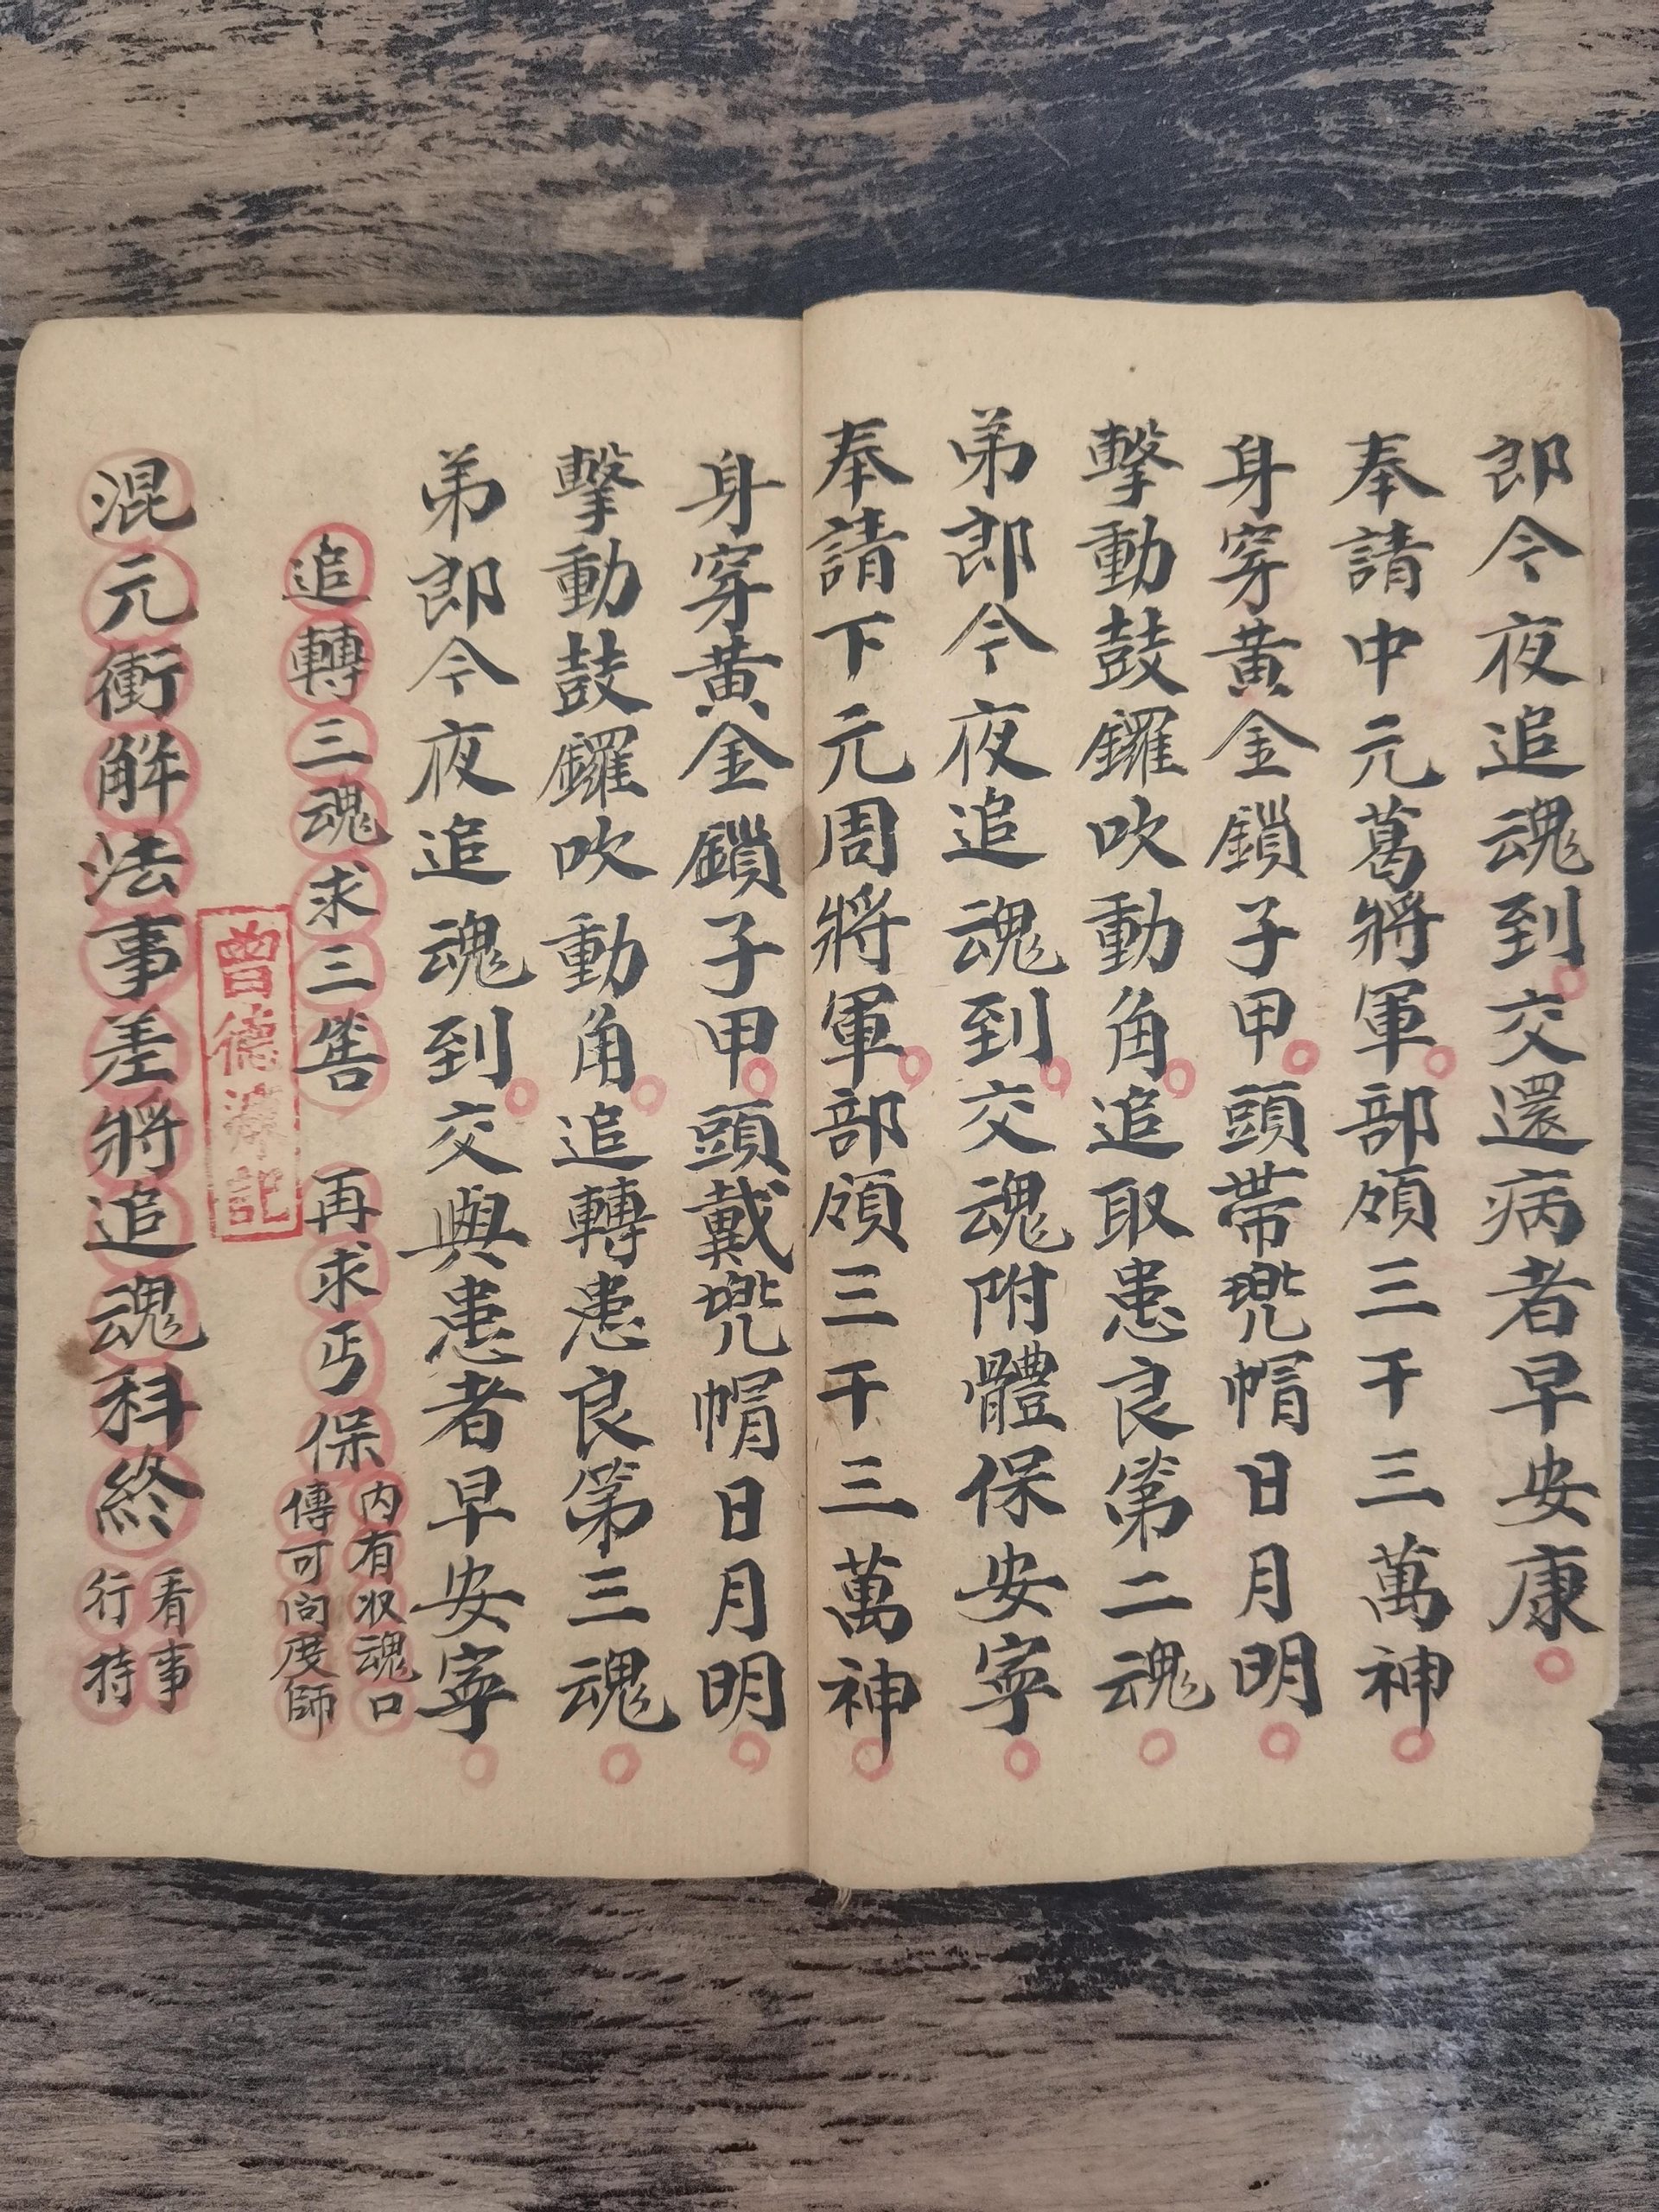 郎今夜追魂到交還病者早安康
奉請中元葛將軍部領三千三萬神
身穿黃金鎖子甲頭帶兜帽日月明
擊動鼓鑼吹動角追取患良第二魂
弟郎今夜追魂到交魂附體保安寧
奉請下元周將軍部領三千三萬神
身穿黃金鎖子甲頭戴兜帽日月明
擊動鼓鑼吹動角追轉患良第三魂
弟郎今夜追魂到交與患者早安寧
追轉三魂求三筶 再求丐保
内有収魂口
傳可问度師
曾德記
混元衝解法事差將追魂科終
看事
行持